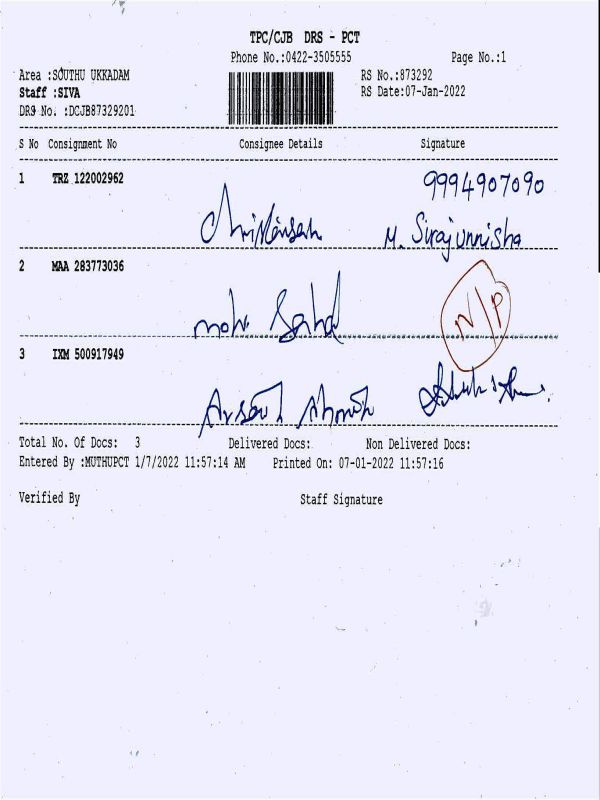 TPC/CJB DRS - PCT
Phone No.:0422-3505555 Page No.:1
Area :SOUTHU UKKADAM RS No.:873292
Staff :SIVA RS Date:07-Jan-2022
DRS No. :DCJB87329201
S No Consignment No Consignee Details Signature
1 TRZ 122002962 9994907090
M. Sirajunnisha
2 MAA 283773036
N/P
moh.
3 IXM 500917949
Total No. Of Docs: 3 Delivered Docs: Non Delivered Docs:
Entered By :MUTHUPCT 1/7/2022 11:57:14 AM Printed On: 07-01-2022 11:57:16
Verified By Staff Signature